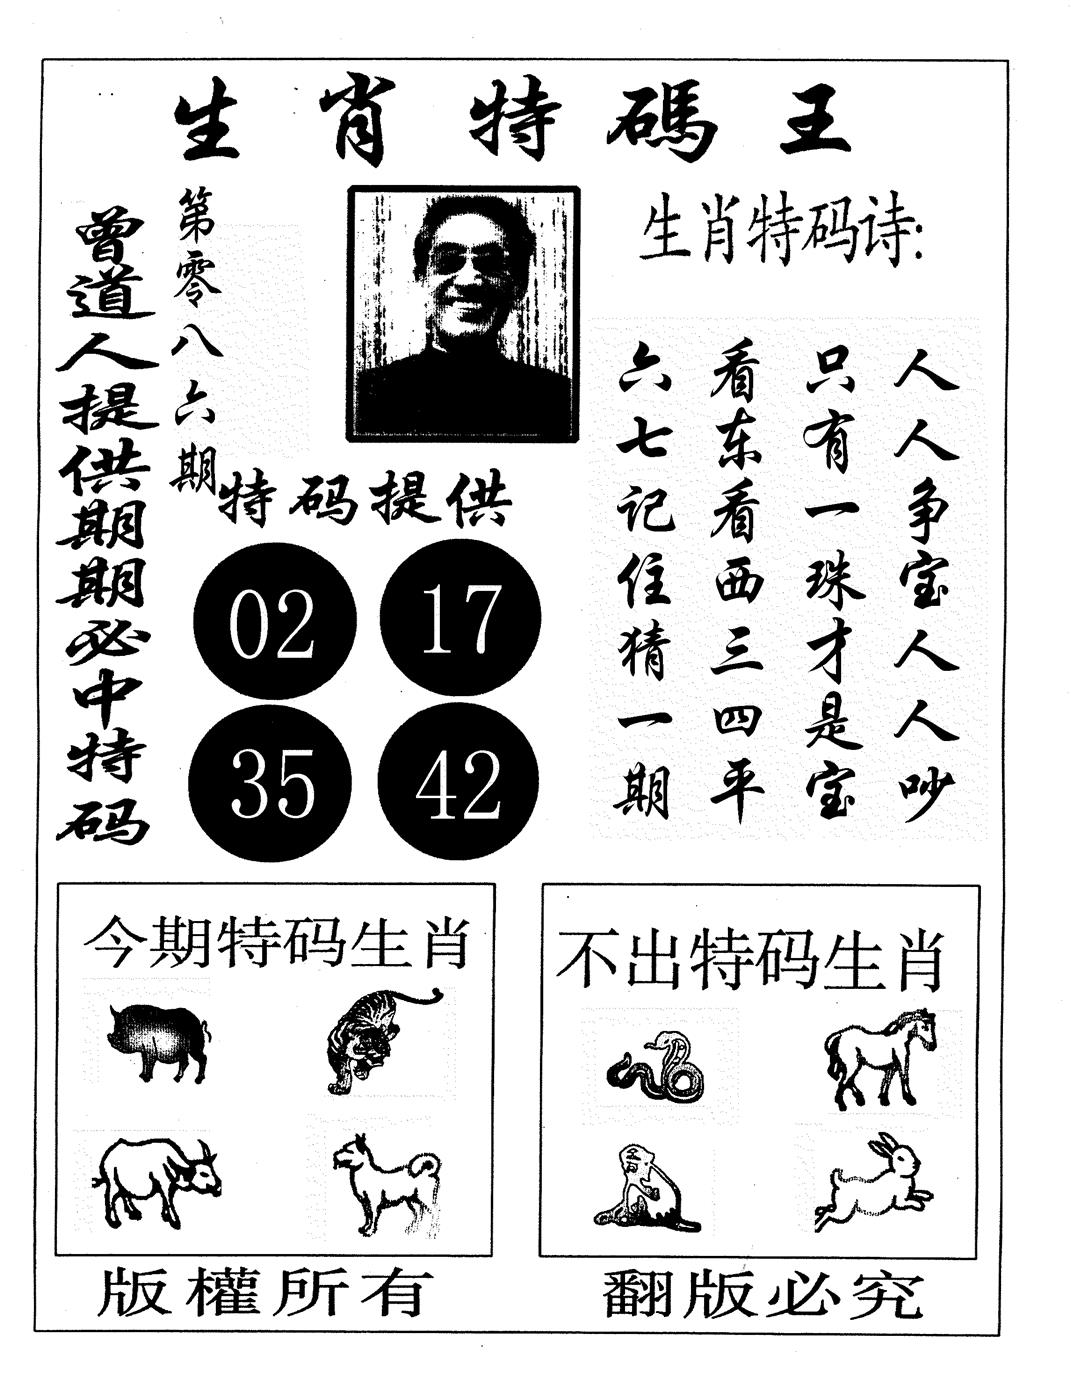 生肖特碼王
曾道人提供期期必中特码
第零八六期
生肖特码诗:
人人争宝人人吵
只有一珠才是宝
看东看西三四平
六七记住猜一期
特码提供
02 17
35 42
今期特码生肖
不出特码生肖
版權所有
翻版必究